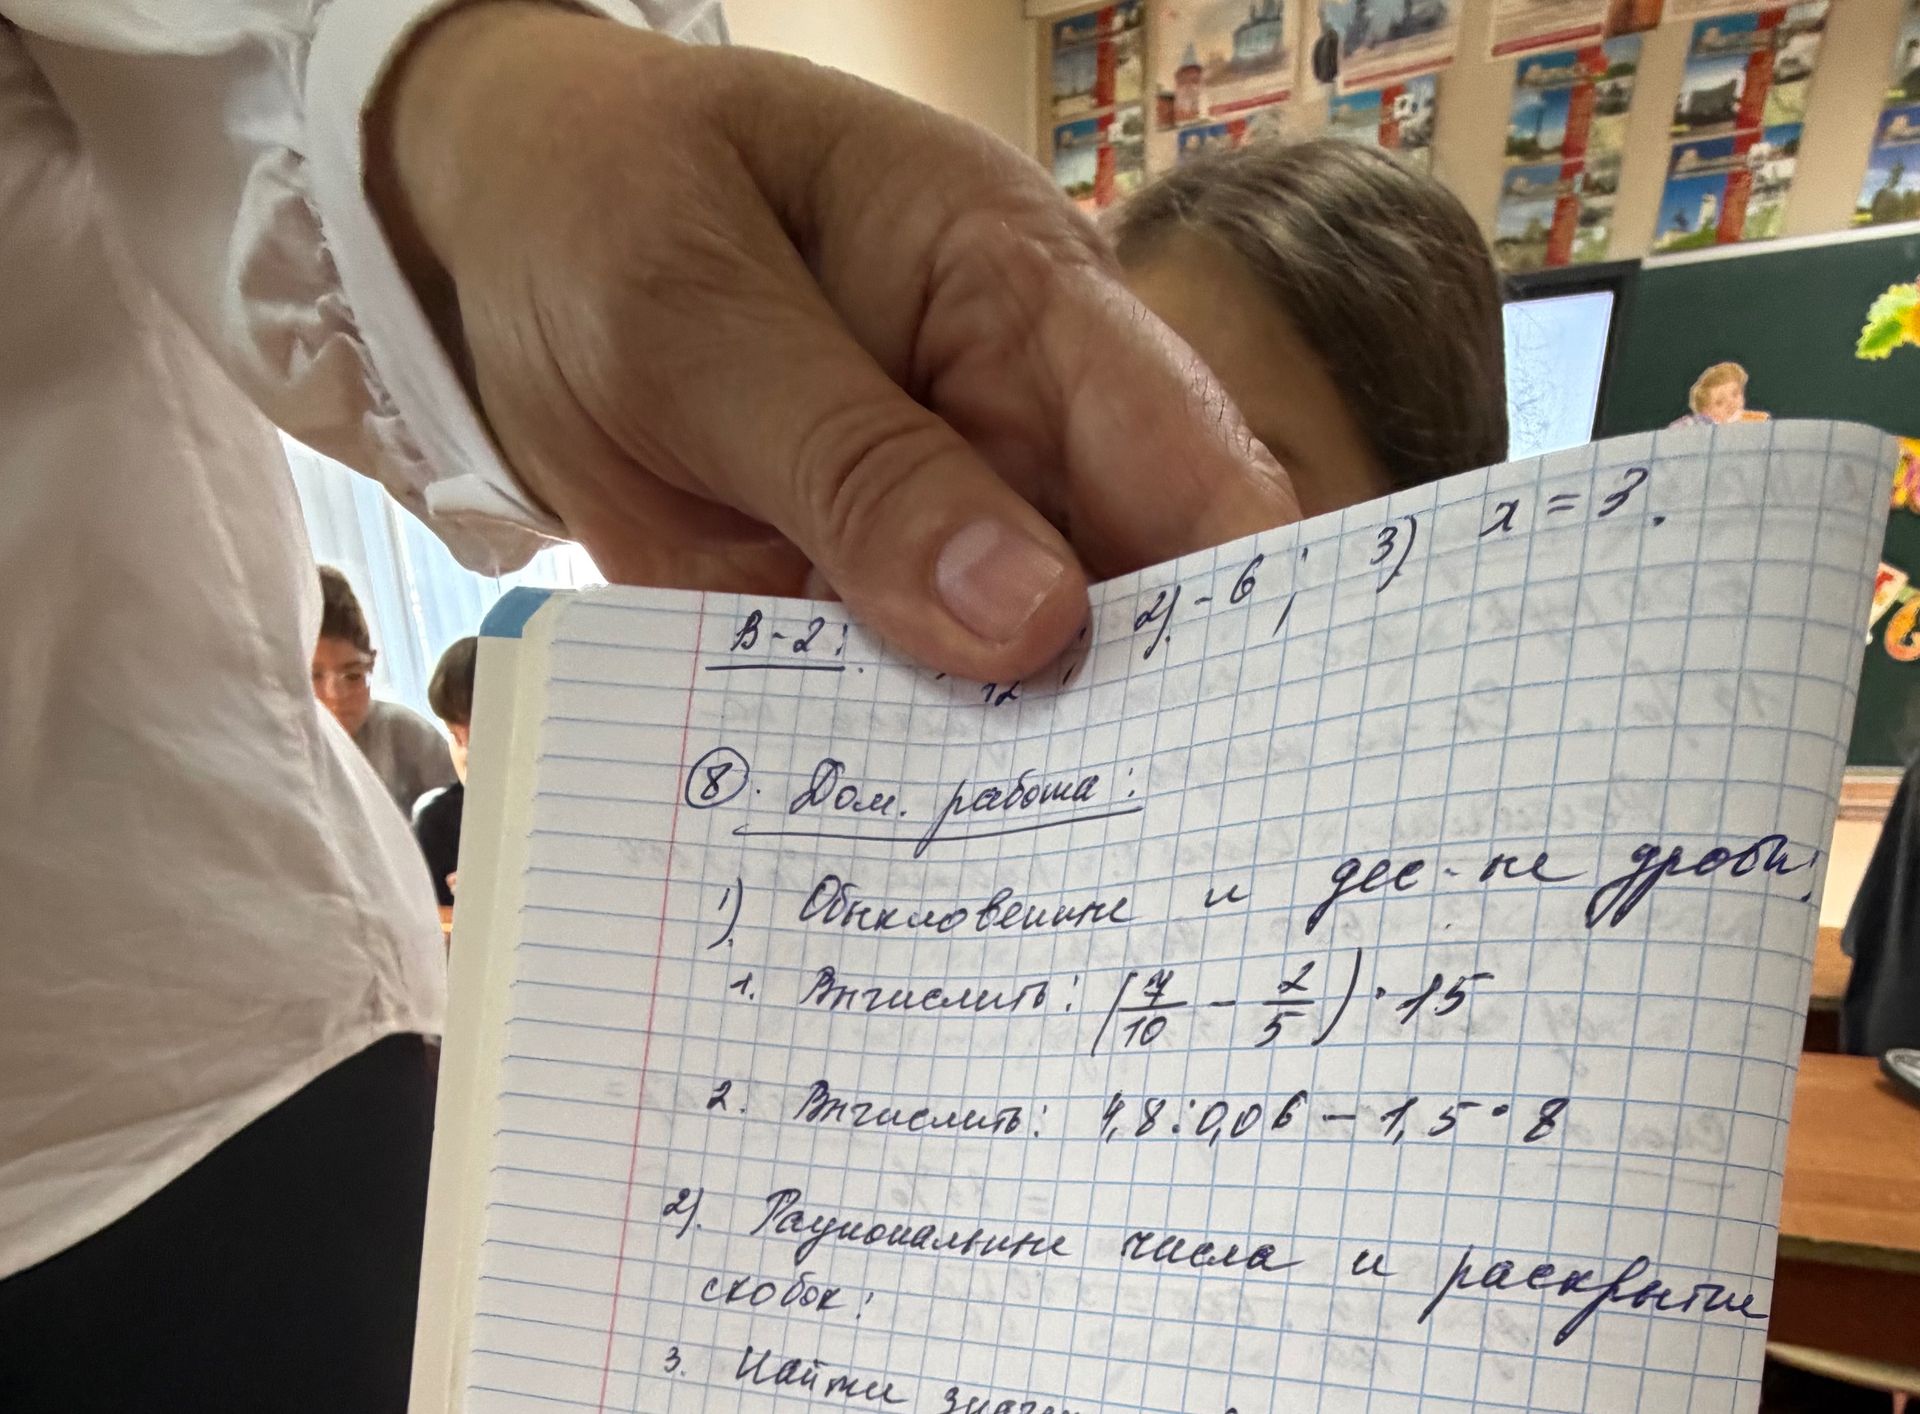 В-2: 12 ; 2) -6 ; 3) x = 3.
8. Дом. работа:
1). Обыкновенные и дес-ые дроби:
1. Вычислить: (7/10 - 2/5) · 15
2. Вычислить: 4,8 : 0,06 - 1,5 · 8
2). Рациональные числа и раскрытие
скобок:
3. Найти